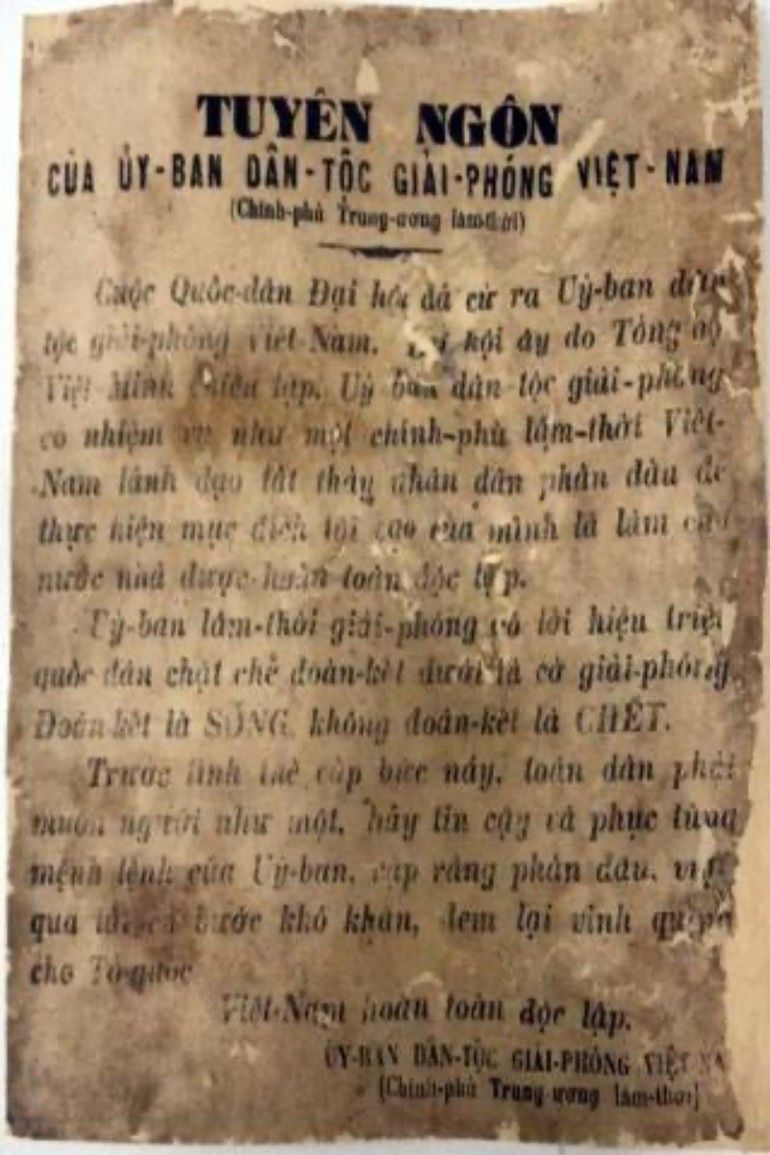 TUYÊN NGÔN
CỦA ỦY-BAN DÂN-TỘC GIẢI-PHÓNG VIỆT-NAM
(Chính-phủ Trung-ương lâm-thời)
Cuộc Quốc-dân Đại hội đã cử ra Uỷ-ban dân
tộc giải-phóng Việt-Nam. Đại hội ấy do Tổng bộ
Việt Minh triệu tập. Uỷ ban dân tộc giải-phóng
có nhiệm vụ như một chính-phủ lâm-thời Việt-
Nam lãnh đạo tất thảy nhân dân phấn đấu để
thực hiện mục đích tối cao của mình là làm cho
nước nhà được hoàn toàn độc lập.
Uỷ-ban lâm-thời giải-phóng có lời hiệu triệu
quốc dân chặt chẽ đoàn-kết dưới lá cờ giải-phóng.
Đoàn-kết là SỐNG, không đoàn-kết là CHẾT.
Trước tình thế cấp bức này, toàn dân phải
muôn người như một, hãy tin cậy và phục tùng
mệnh lệnh của Uỷ-ban, phấn đấu, vượt
qua bước khó khăn, đem lại vinh quang
cho Tổ-quốc
Việt-Nam hoàn toàn độc lập.
ỦY-BAN DÂN-TỘC GIẢI-PHÓNG VIỆT NAM
(Chính-phủ Trung-ương lâm-thời)